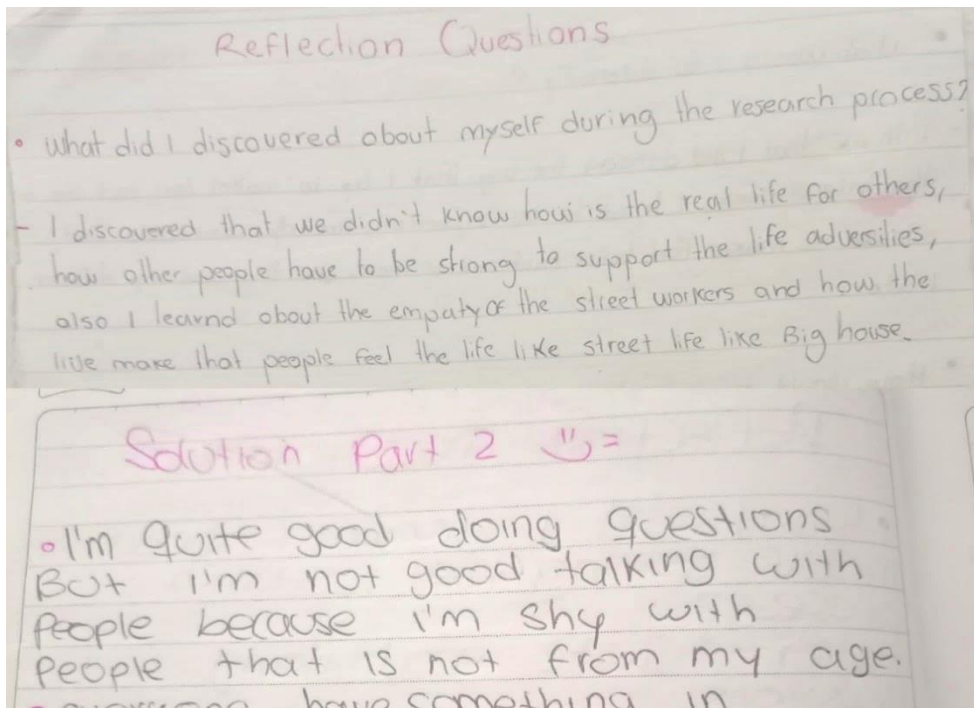 Reflection Questions
• What did I discovered about myself during the research process?
- I discovered that we didn't know how is the real life for others,
how other people have to be strong to support the life adversilies,
also I learnd about the empaty of the street workers and how the
live make that people feel the life like street life like Big house.
Solution Part 2
• I'm quite good doing questions
But I'm not good talking with
People because I'm shy with
People that is not from my age.
have something in